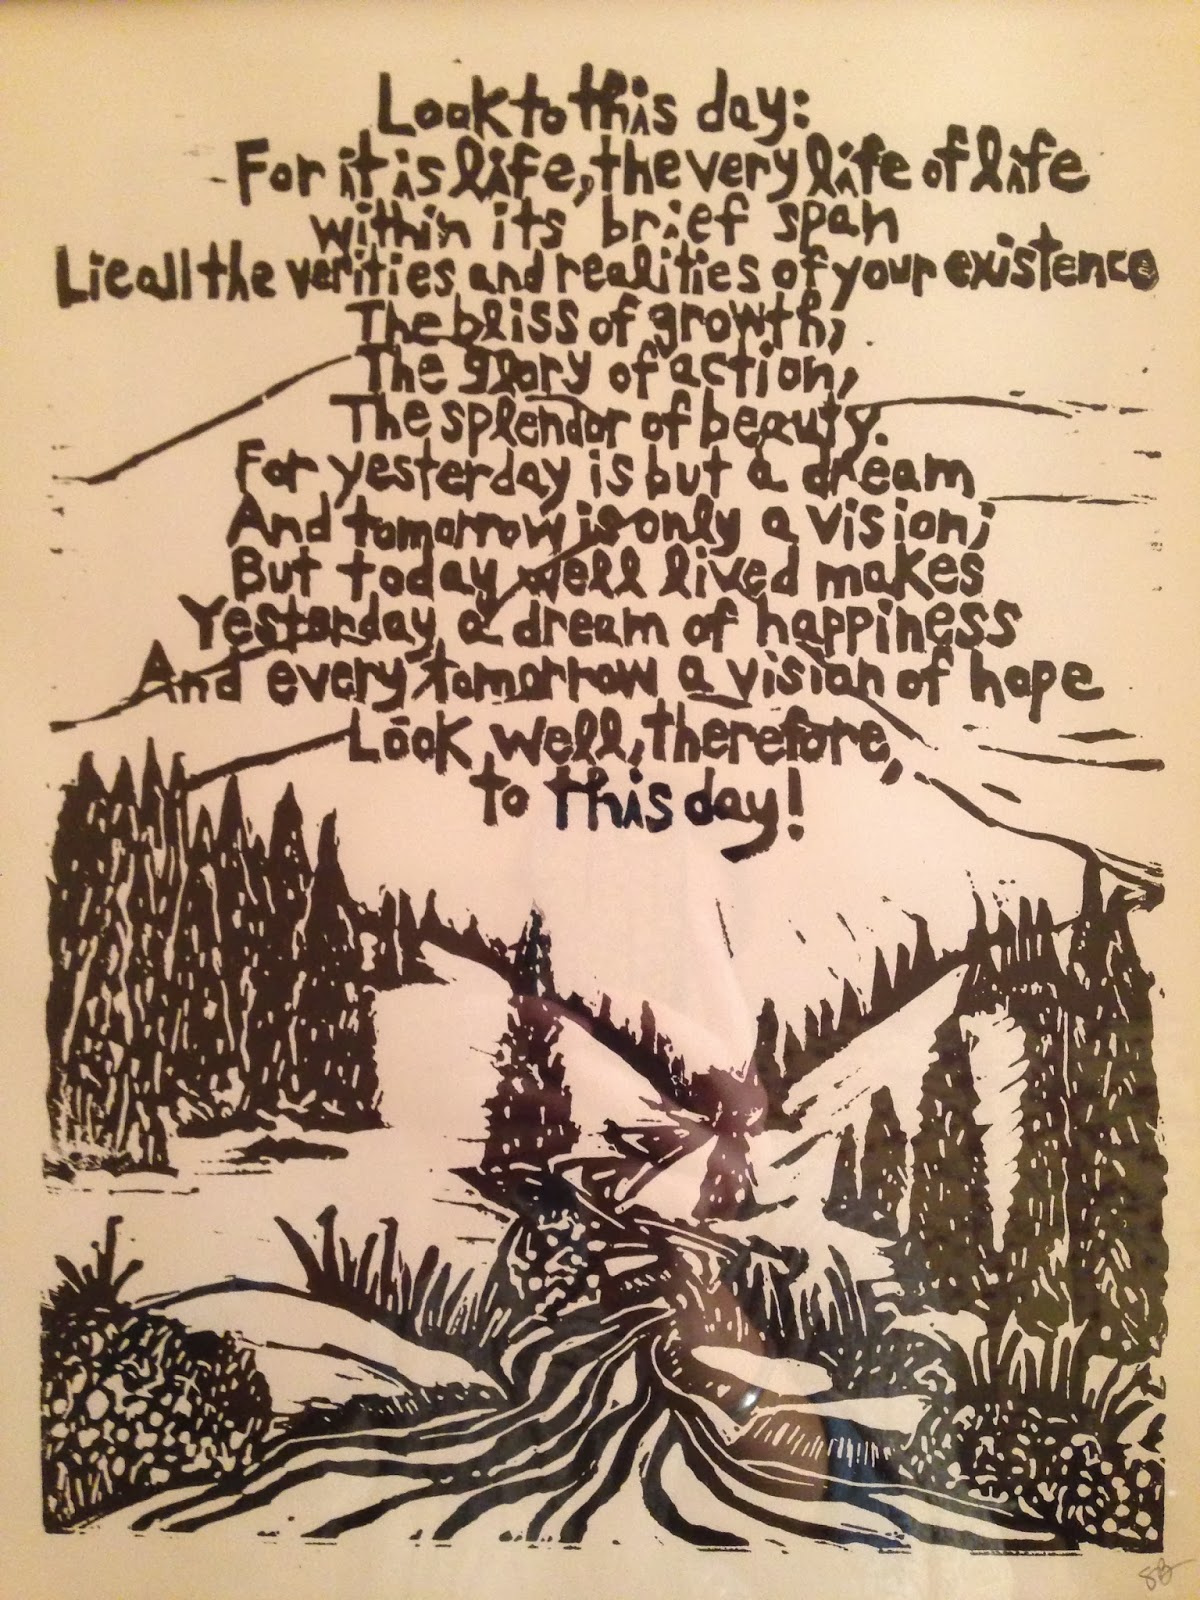 Look to this day:
For it is life, the very life of life
within its brief span
Lie all the verities and realities of your existence
The bliss of growth;
The glory of action;
The splendor of beauty.
For yesterday is but a dream
And tomorrow is only a vision;
But today well lived makes
Yesterday a dream of happiness
And every tomorrow a vision of hope
Look well, therefore,
to this day!
SB